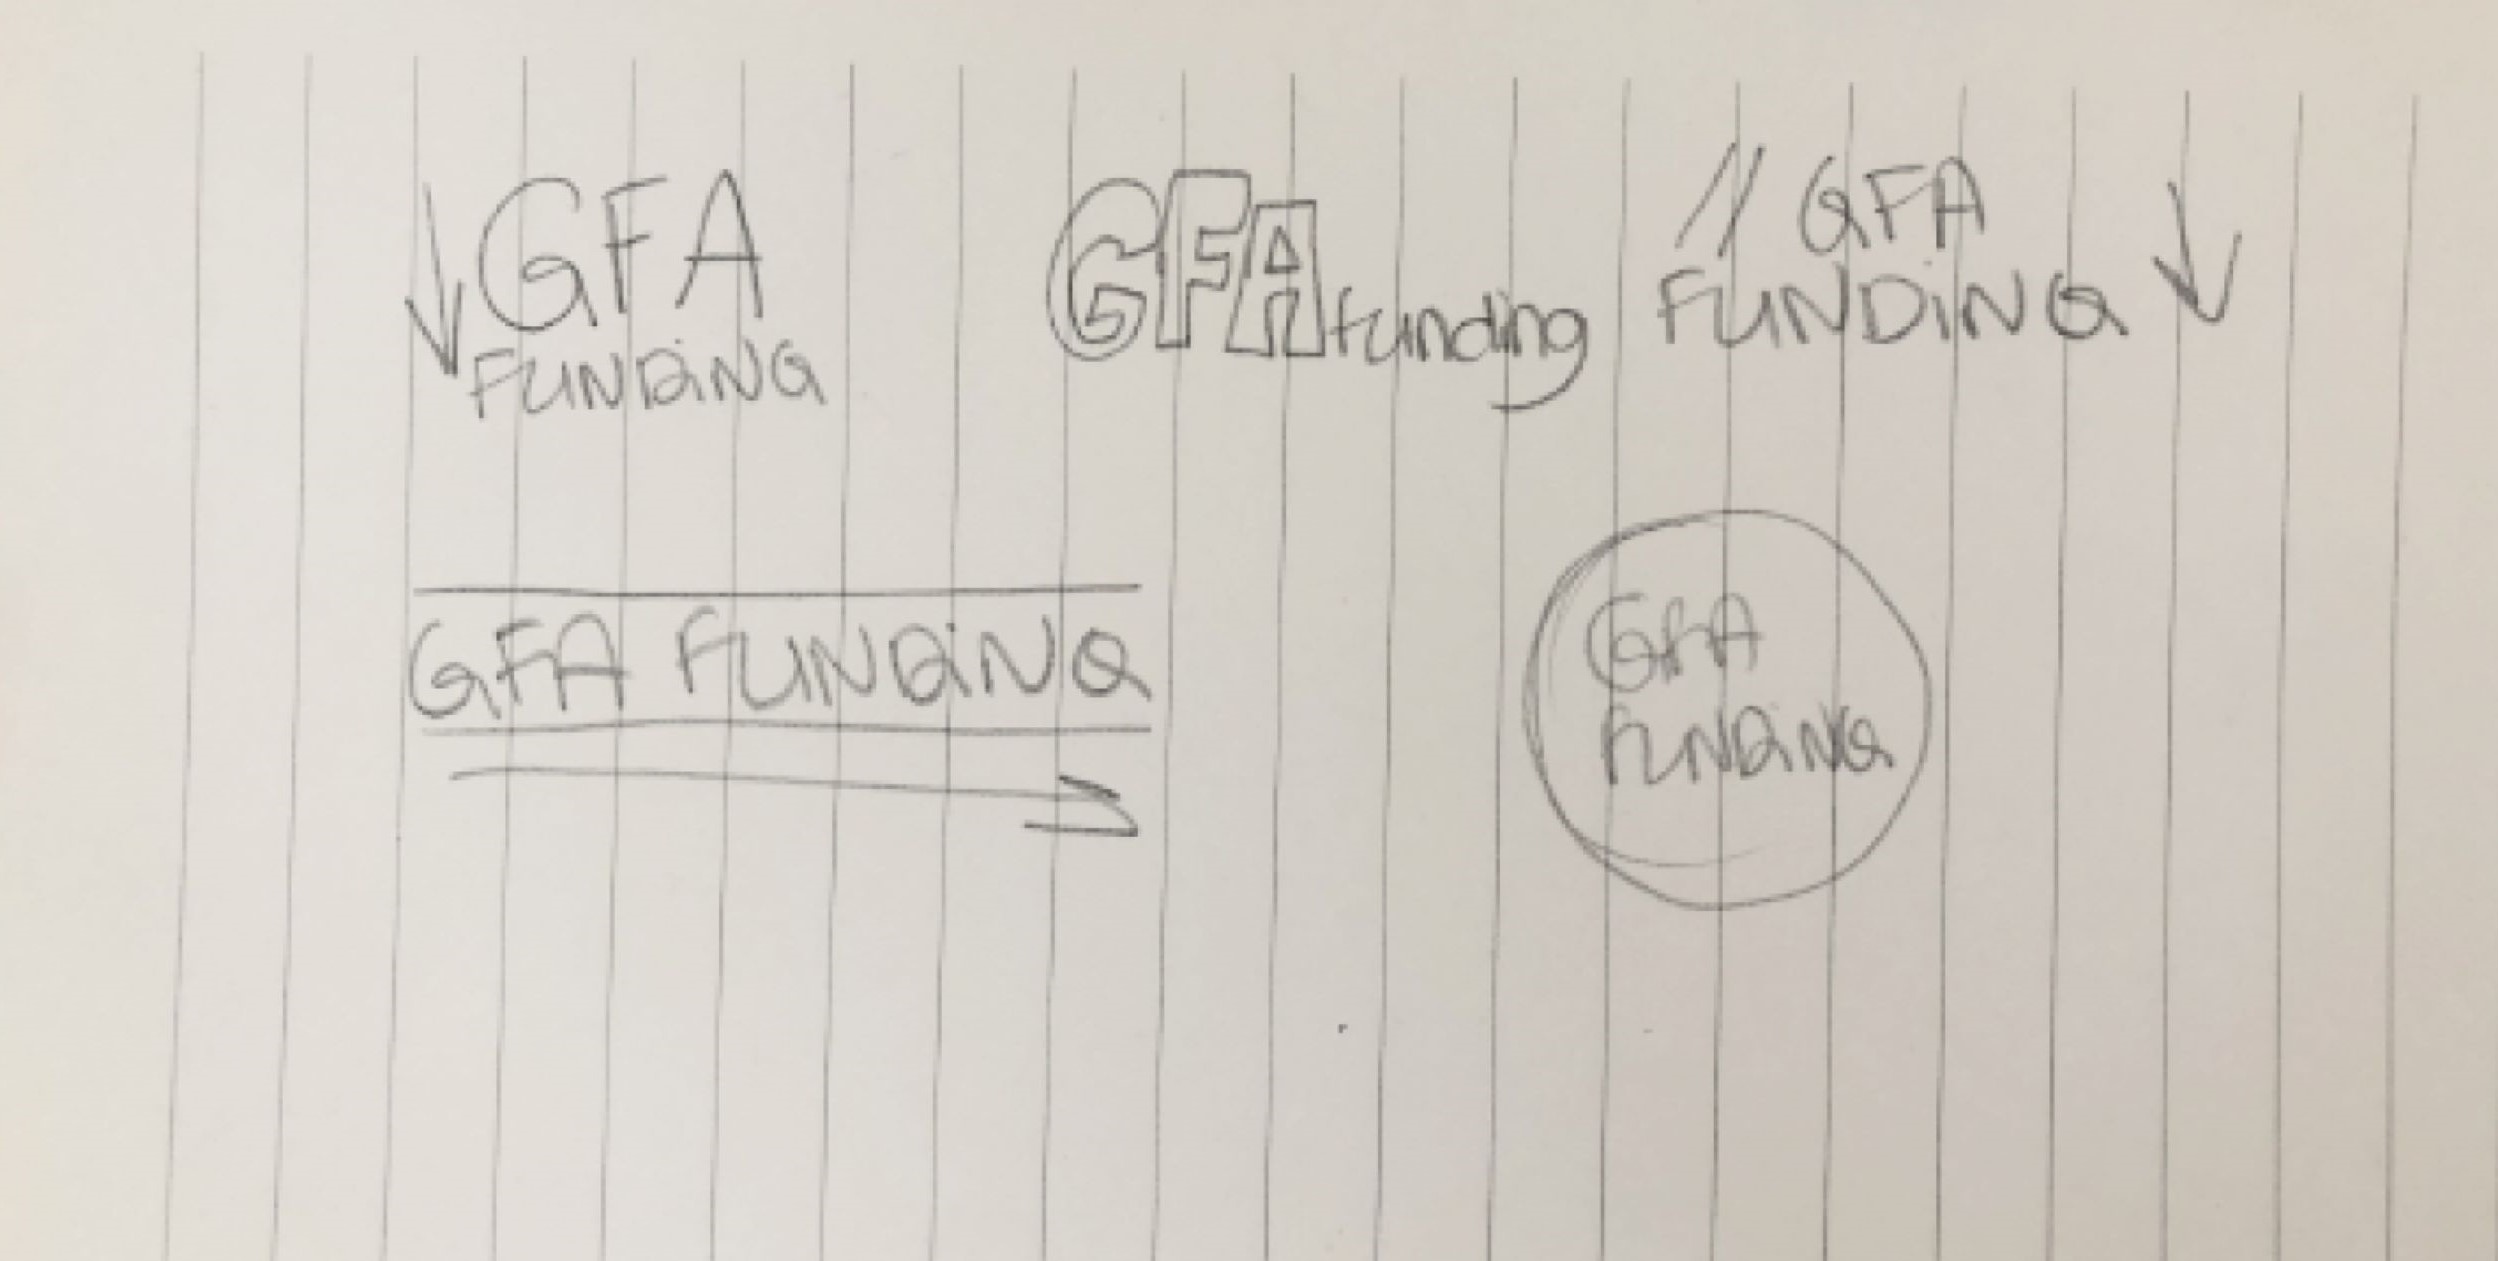 GFA
FUNDING
GFA funding
GFA
FUNDING
GFA FUNDING
GFA
FUNDING